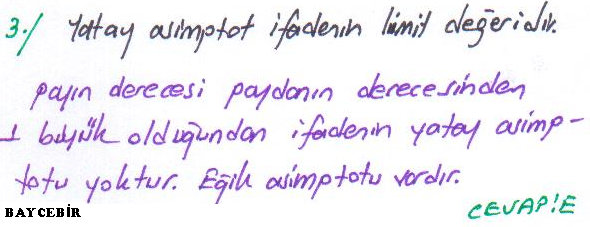 3./ Yatay asimptot ifadenin limit değeridir.
payın derecesi paydanın derecesinden
1 büyük olduğundan ifadenin yatay asimp-
totu yoktur. Eğik asimptotu vardır.
BAYCEBİR
CEVAP:E